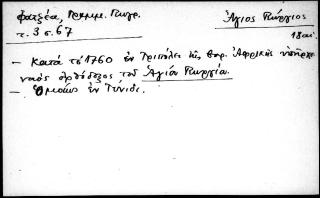 φατζέα, Γραμμ. Γεωργ. Ἅγιος Γεώργιος
τ. 3 σ. 67 18 αἰ.
— Κατά τό 1760 ἐν Τριπόλει τῆς βορ. Ἀφρικῆς ὑπῆρχε
ναός ὀρθόδοξος τοῦ Ἁγίου Γεωργίου.
— Ὁμοίως ἐν Τύνιδι.